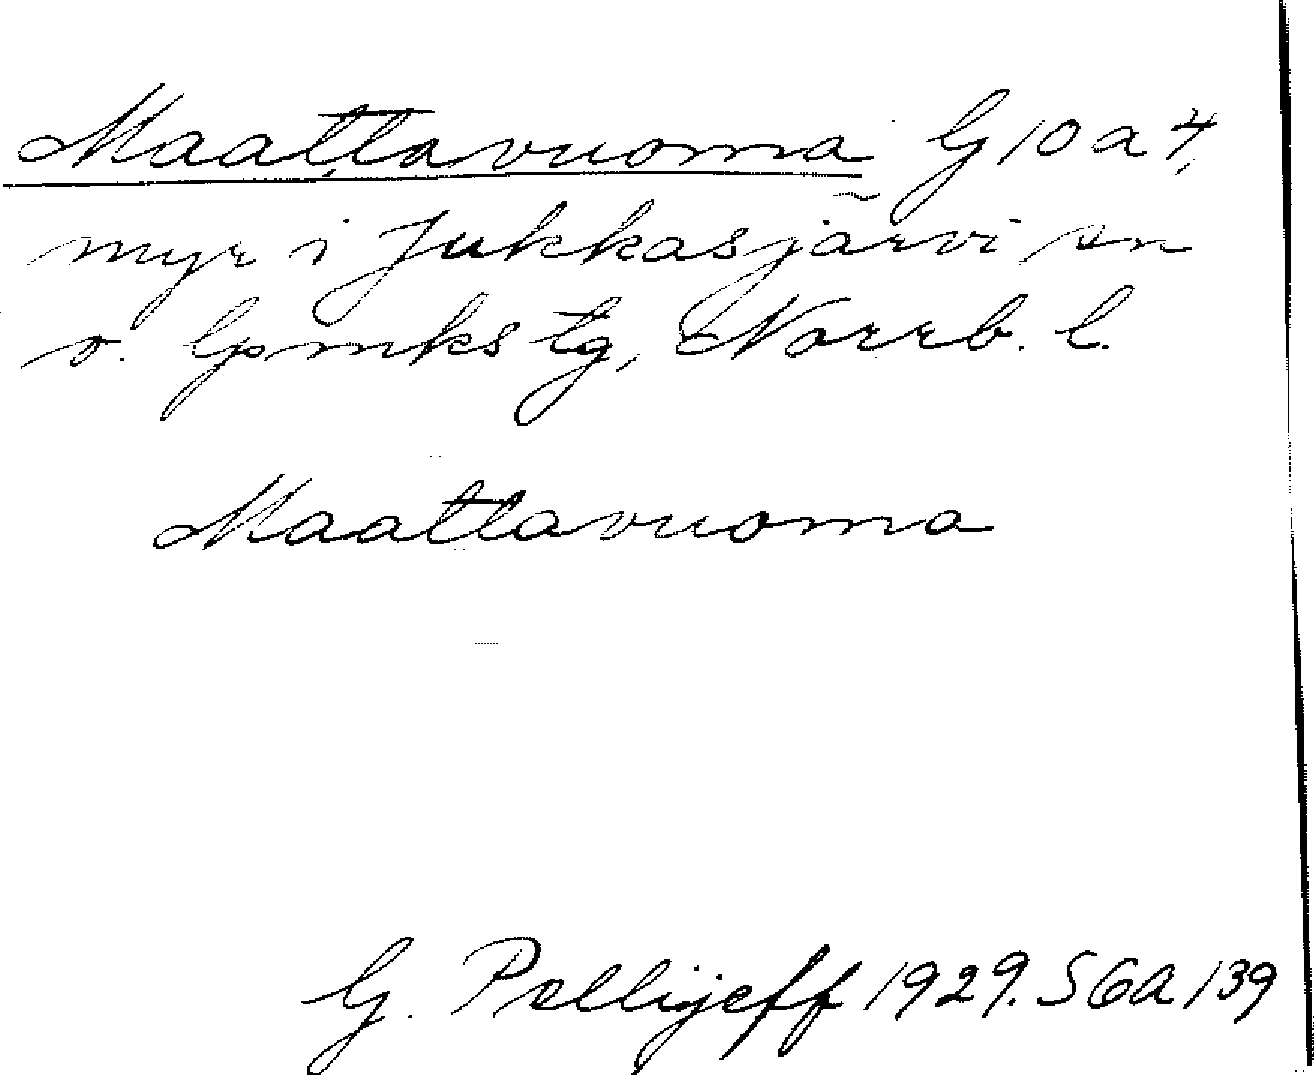 Maattavuoma G 10 a 4,
myr i Jukkasjärvi sn
o. lpmks tg, Norrb. l.
Maattavuoma
G. Pellijeff 1929. SGA 139